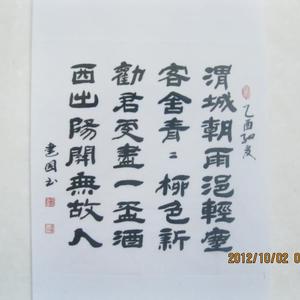 乙酉初夏
渭城朝雨浥輕塵
客舍青〻柳色新
勸君更盡一盃酒
西出陽關無故人
建国书
2012/10/02